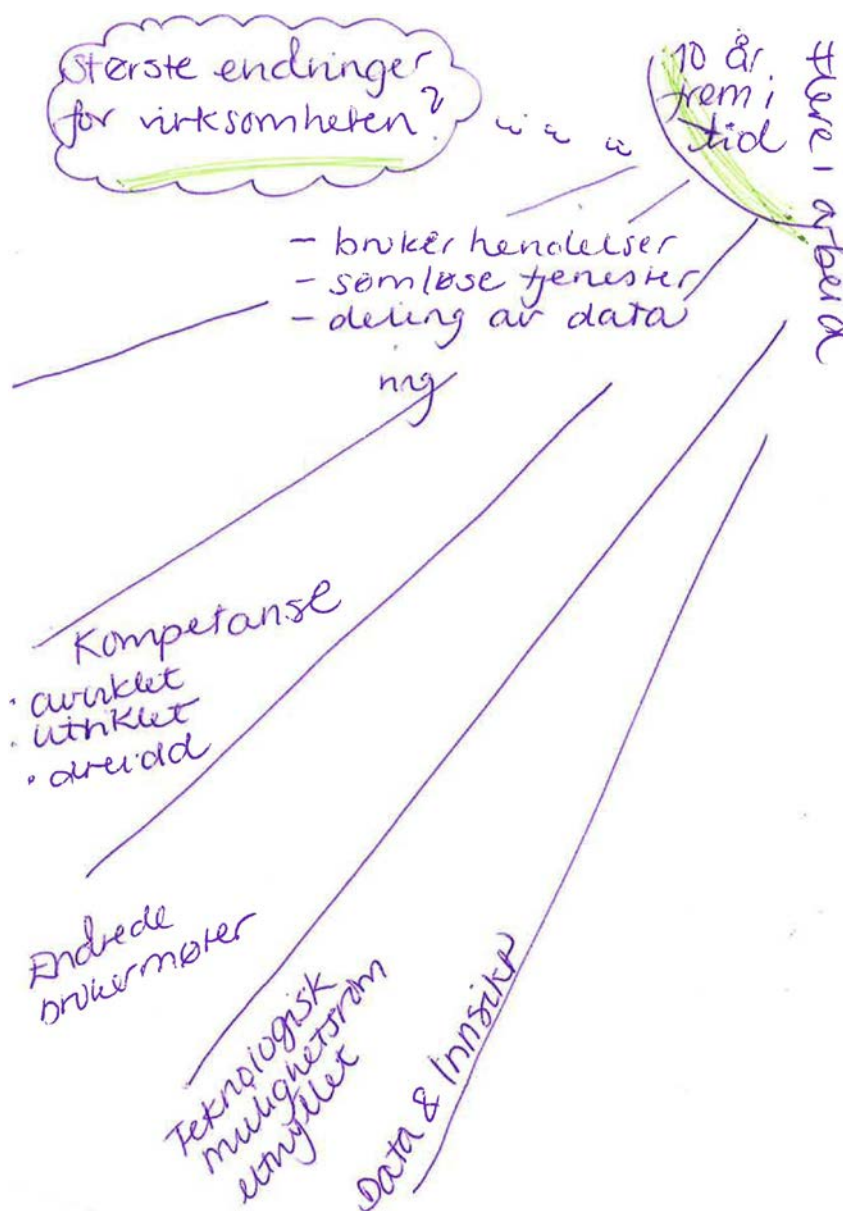 største endringer
for virksomheten?
10 år
frem i
tid
flere i arbeid
- brukerhendelser
- sømløse tjenester
- deling av data
Kompetanse
• avviklet
• utviklet
• dreidd
Endrede
brukermøter
Teknologisk
mulighetsrom
utnyttet
Data & Innsikt